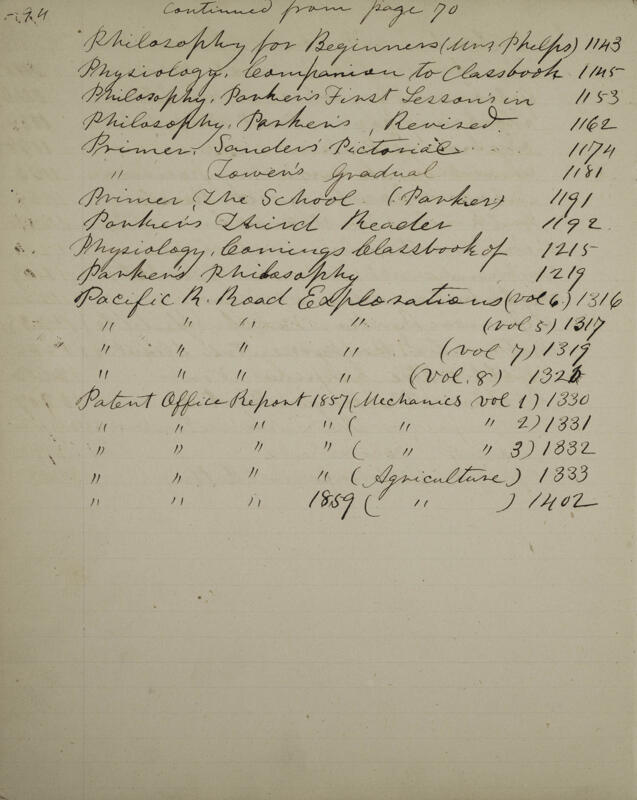 continued from page 70
Philosophy for Beginners (Mrs Phelps) 1143
Physiology, Companion to Classbook 1145
Philosophy, Parker's First Lessons in 1153
Philosophy, Parker's, Revised. 1162
Primer, Sanders' Pictorial 1174
" Tower's Gradual 1181
Primer, The School. (Parker) 1191
Parker's Third Reader 1192
Physiology, Comings Classbook of 1215
Parker's Philosophy 1219
Pacific R. Road Explorations (vol 6) 1316
" " " " (vol 5) 1317
" " " " (vol 7) 1319
" " " " (vol. 8) 1320
Patent Office Report 1857 (Mechanics vol 1) 1330
" " " " ( " " 2) 1331
" " " " ( " " 3) 1332
" " " " (Agriculture) 1333
" " " 1859 ( " ) 1402